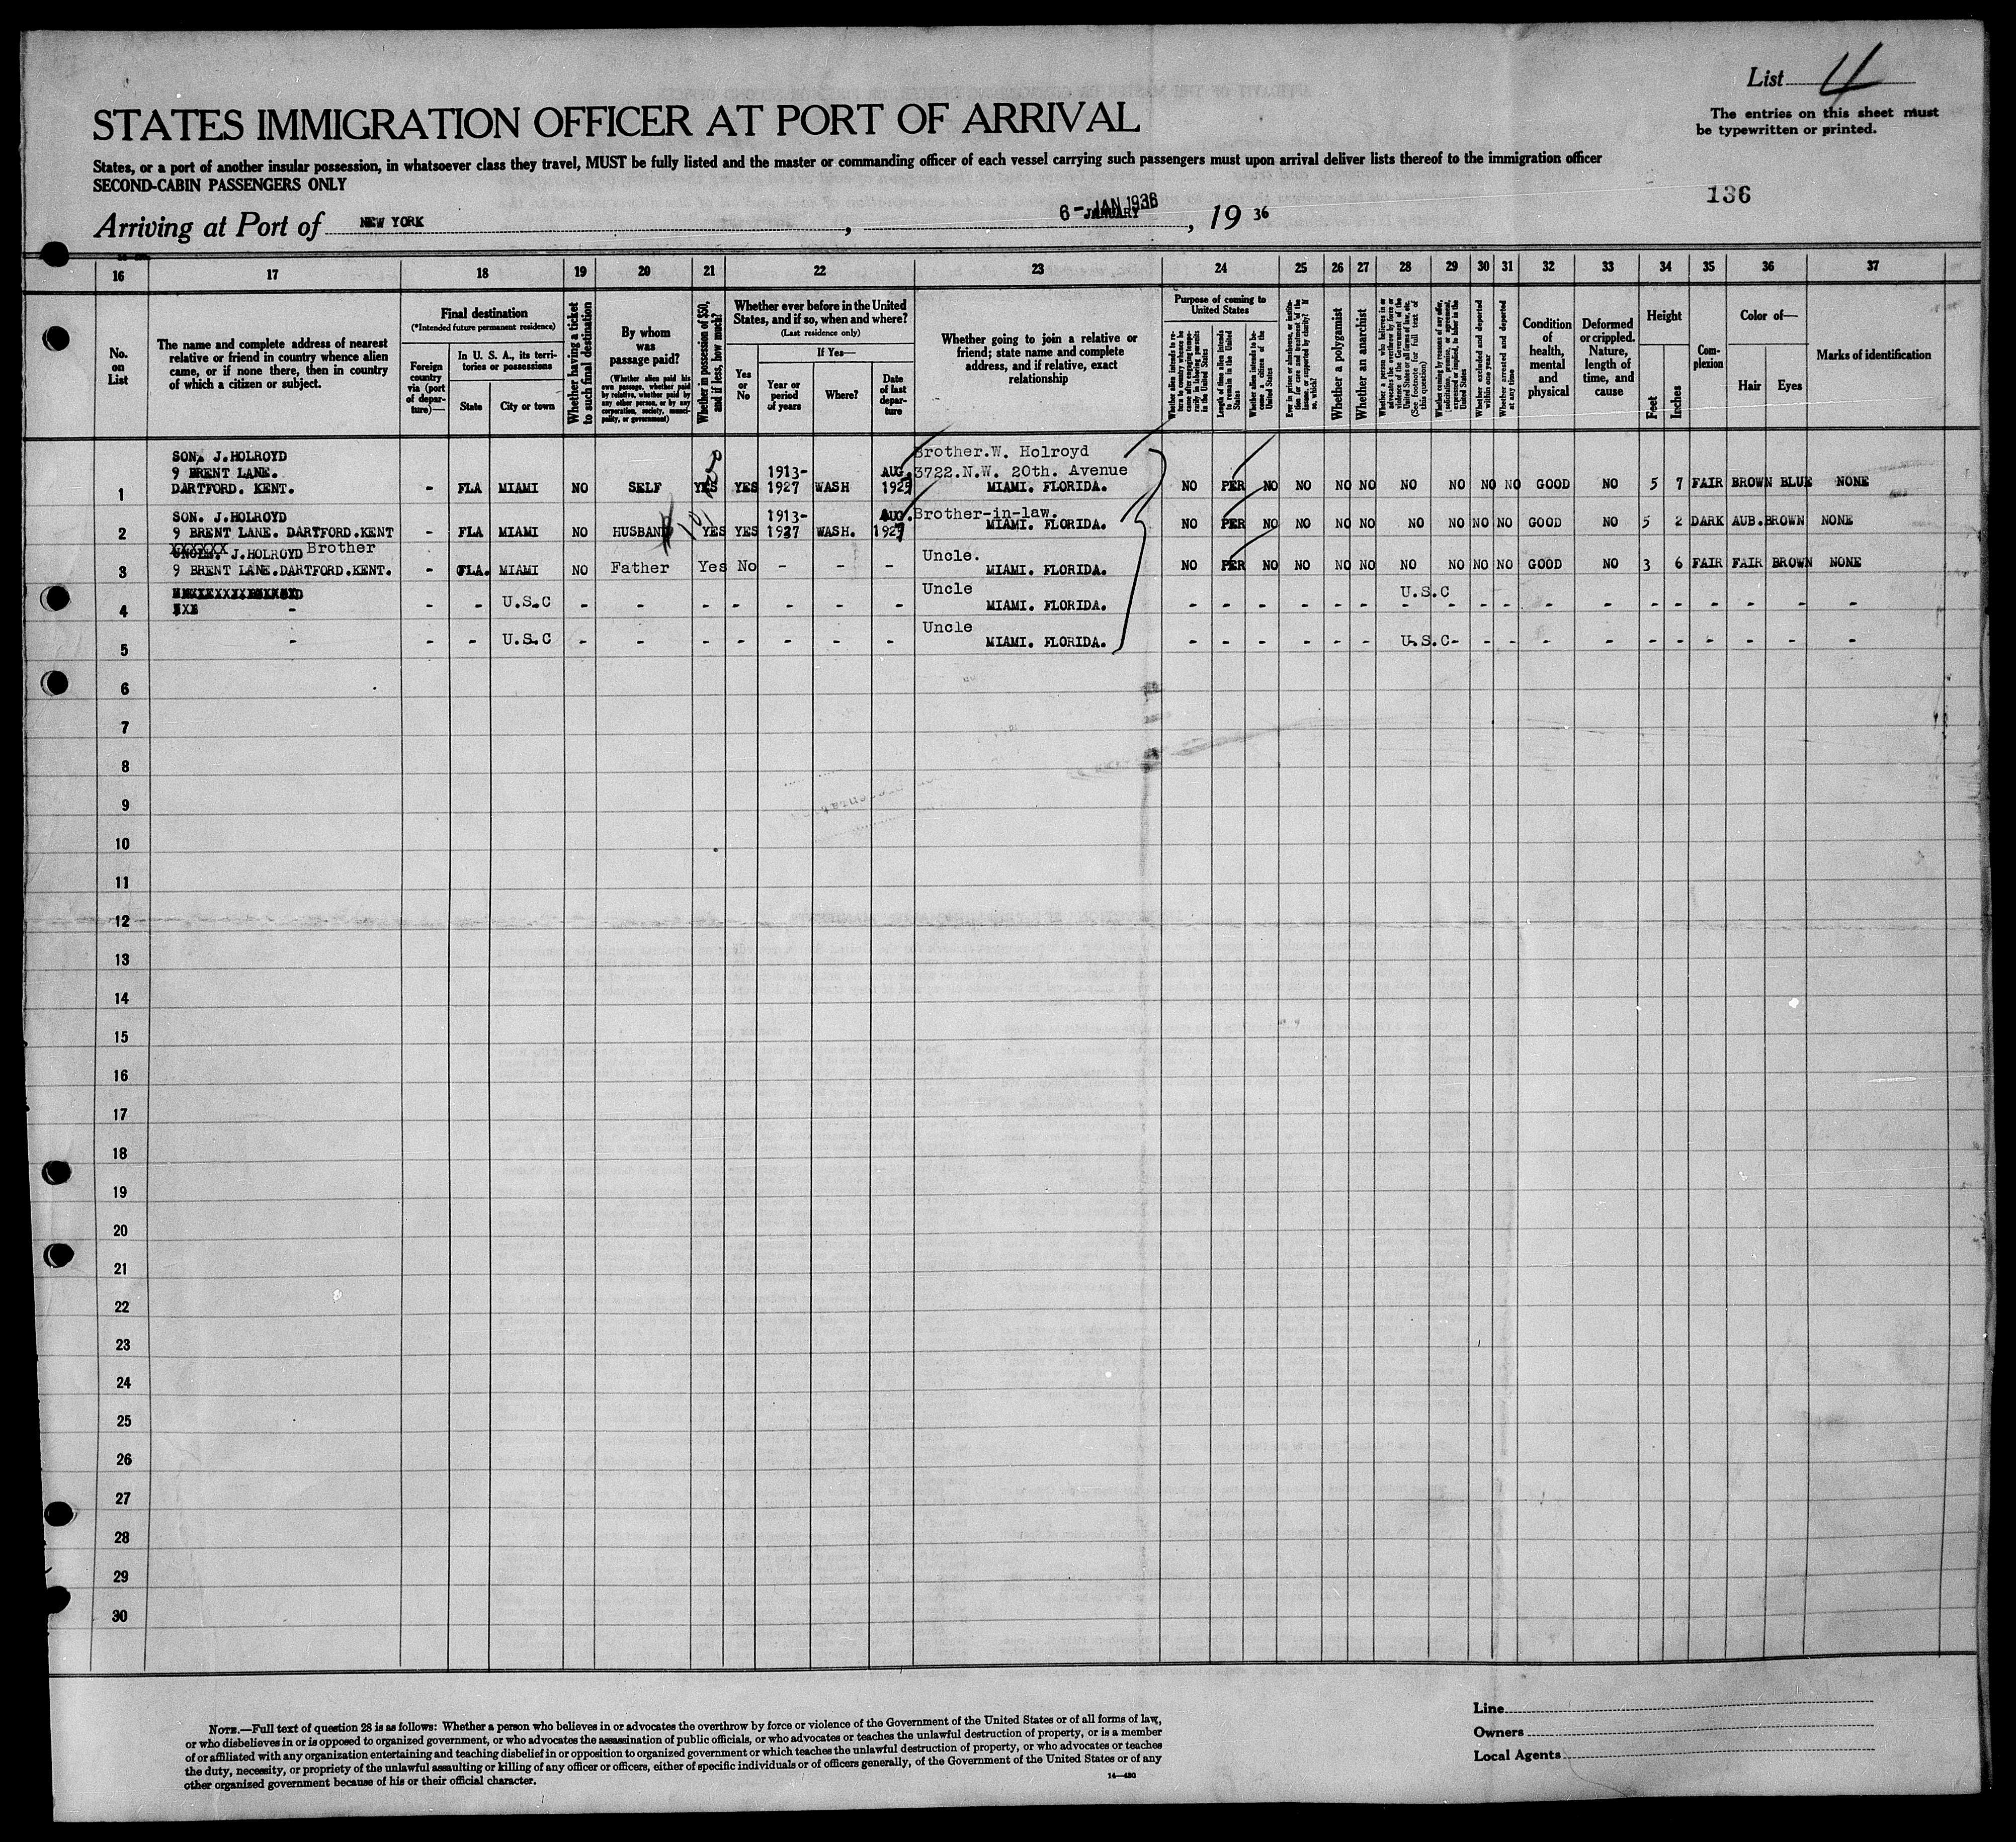 List 4
The entries on this sheet must
be typewritten or printed.
STATES IMMIGRATION OFFICER AT PORT OF ARRIVAL
States, or a port of another insular possession, in whatsoever class they travel, MUST be fully listed and the master or commanding officer of each vessel carrying such passengers must upon arrival deliver lists thereof to the immigration officer
SECOND-CABIN PASSENGERS ONLY
136
Arriving at Port of NEW YORK, 6 - JAN 1936 JANUARY, 19 36
16 17 18 19 20 21 22 23 24 25 26 27 28 29 30 31 32 33 34 35 36 37
No.
on
List
The name and complete address of nearest
relative or friend in country whence alien
came, or if none there, then in country
of which a citizen or subject.
Final destination
(*Intended future permanent residence)
Foreign
country
via (port
of depar-
ture)—
In U. S. A., its terri-
tories or possessions
State
City or town
Whether having a ticket
to such final destination
By whom
was
passage paid?
(Whether alien paid his
own passage, whether paid
by relative, whether paid by
any other person, or by any
corporation, society, munici-
pality, or government)
Whether in possession of $50,
and if less, how much?
Whether ever before in the United
States, and if so, when and where?
(Last residence only)
Yes
or
No
If Yes—
Year or
period
of years
Where?
Date
of last
depar-
ture
Whether going to join a relative or
friend; state name and complete
address, and if relative, exact
relationship
Purpose of coming to
United States
Whether alien intends to re-
turn to country whence he
came after engaging tempo-
rarily in laboring pursuits
in the United States
Length of time alien intends
to remain in the United
States
Whether alien intends to be-
come a citizen of the
United States
Ever in prison or almshouse, or institu-
tion for care and treatment of the
insane, or supported by charity? If
so, which?
Whether a polygamist
Whether an anarchist
Whether a person who believes in or
advocates the overthrow by force or
violence of the Government of the
United States or all forms of law, etc.
(See footnote for full text of
this question)
Whether coming by reason of any offer,
solicitation, promise, or agreement,
expressed or implied, to labor in the
United States
Whether excluded and deported
within one year
Whether arrested and deported
at any time
Condition
of
health,
mental
and
physical
Deformed
or crippled.
Nature,
length of
time, and
cause
Height
Feet
Inches
Com-
plexion
Color of—
Hair
Eyes
Marks of identification
SON, J.HOLROYD Brother.W. Holroyd
9 BRENT LANE. 1913- AUG. 3722.N.W. 20th. Avenue
1 DARTFORD. KENT. - FLA MIAMI NO SELF YES YES 1927 WASH 1927 MIAMI. FLORIDA. NO PER NO NO NO NO NO NO NO NO GOOD NO 5 7 FAIR BROWN BLUE NONE
SON. J.HOLROYD 1913- AUG. Brother-in-law.
2 9 BRENT LANE. DARTFORD.KENT - FLA MIAMI NO HUSBAND YES YES 1927 WASH. 1927 MIAMI. FLORIDA. NO PER NO NO NO NO NO NO NO NO GOOD NO 5 2 DARK AUB. BROWN NONE
J.HOLROYD Brother Uncle.
3 9 BRENT LANE.DARTFORD.KENT. - FLA. MIAMI NO Father Yes No - - - MIAMI. FLORIDA. NO PER NO NO NO NO NO NO NO NO GOOD NO 3 6 FAIR FAIR BROWN NONE
Uncle
4 - - - U.S.C - - - - - - - MIAMI. FLORIDA. - - - - - - U.S.C - - - - - - - - - - -
Uncle
5 - - - U.S.C - - - - - - - MIAMI. FLORIDA. - - - - - - U.S.C - - - - - - - - - - -
6
7
8
9
10
11
12
13
14
15
16
17
18
19
20
21
22
23
24
25
26
27
28
29
30
NOTE.—Full text of question 28 is as follows: Whether a person who believes in or advocates the overthrow by force or violence of the Government of the United States or of all forms of law,
or who disbelieves in or is opposed to organized government, or who advocates the assassination of public officials, or who advocates or teaches the unlawful destruction of property, or is a member
of or affiliated with any organization entertaining and teaching disbelief in or opposition to organized government or which teaches the unlawful destruction of property, or who advocates or teaches
the duty, necessity, or propriety of the unlawful assaulting or killing of any officer or officers, either of specific individuals or of officers generally, of the Government of the United States or of any
other organized government because of his or their official character.
14—480
Line
Owners
Local Agents